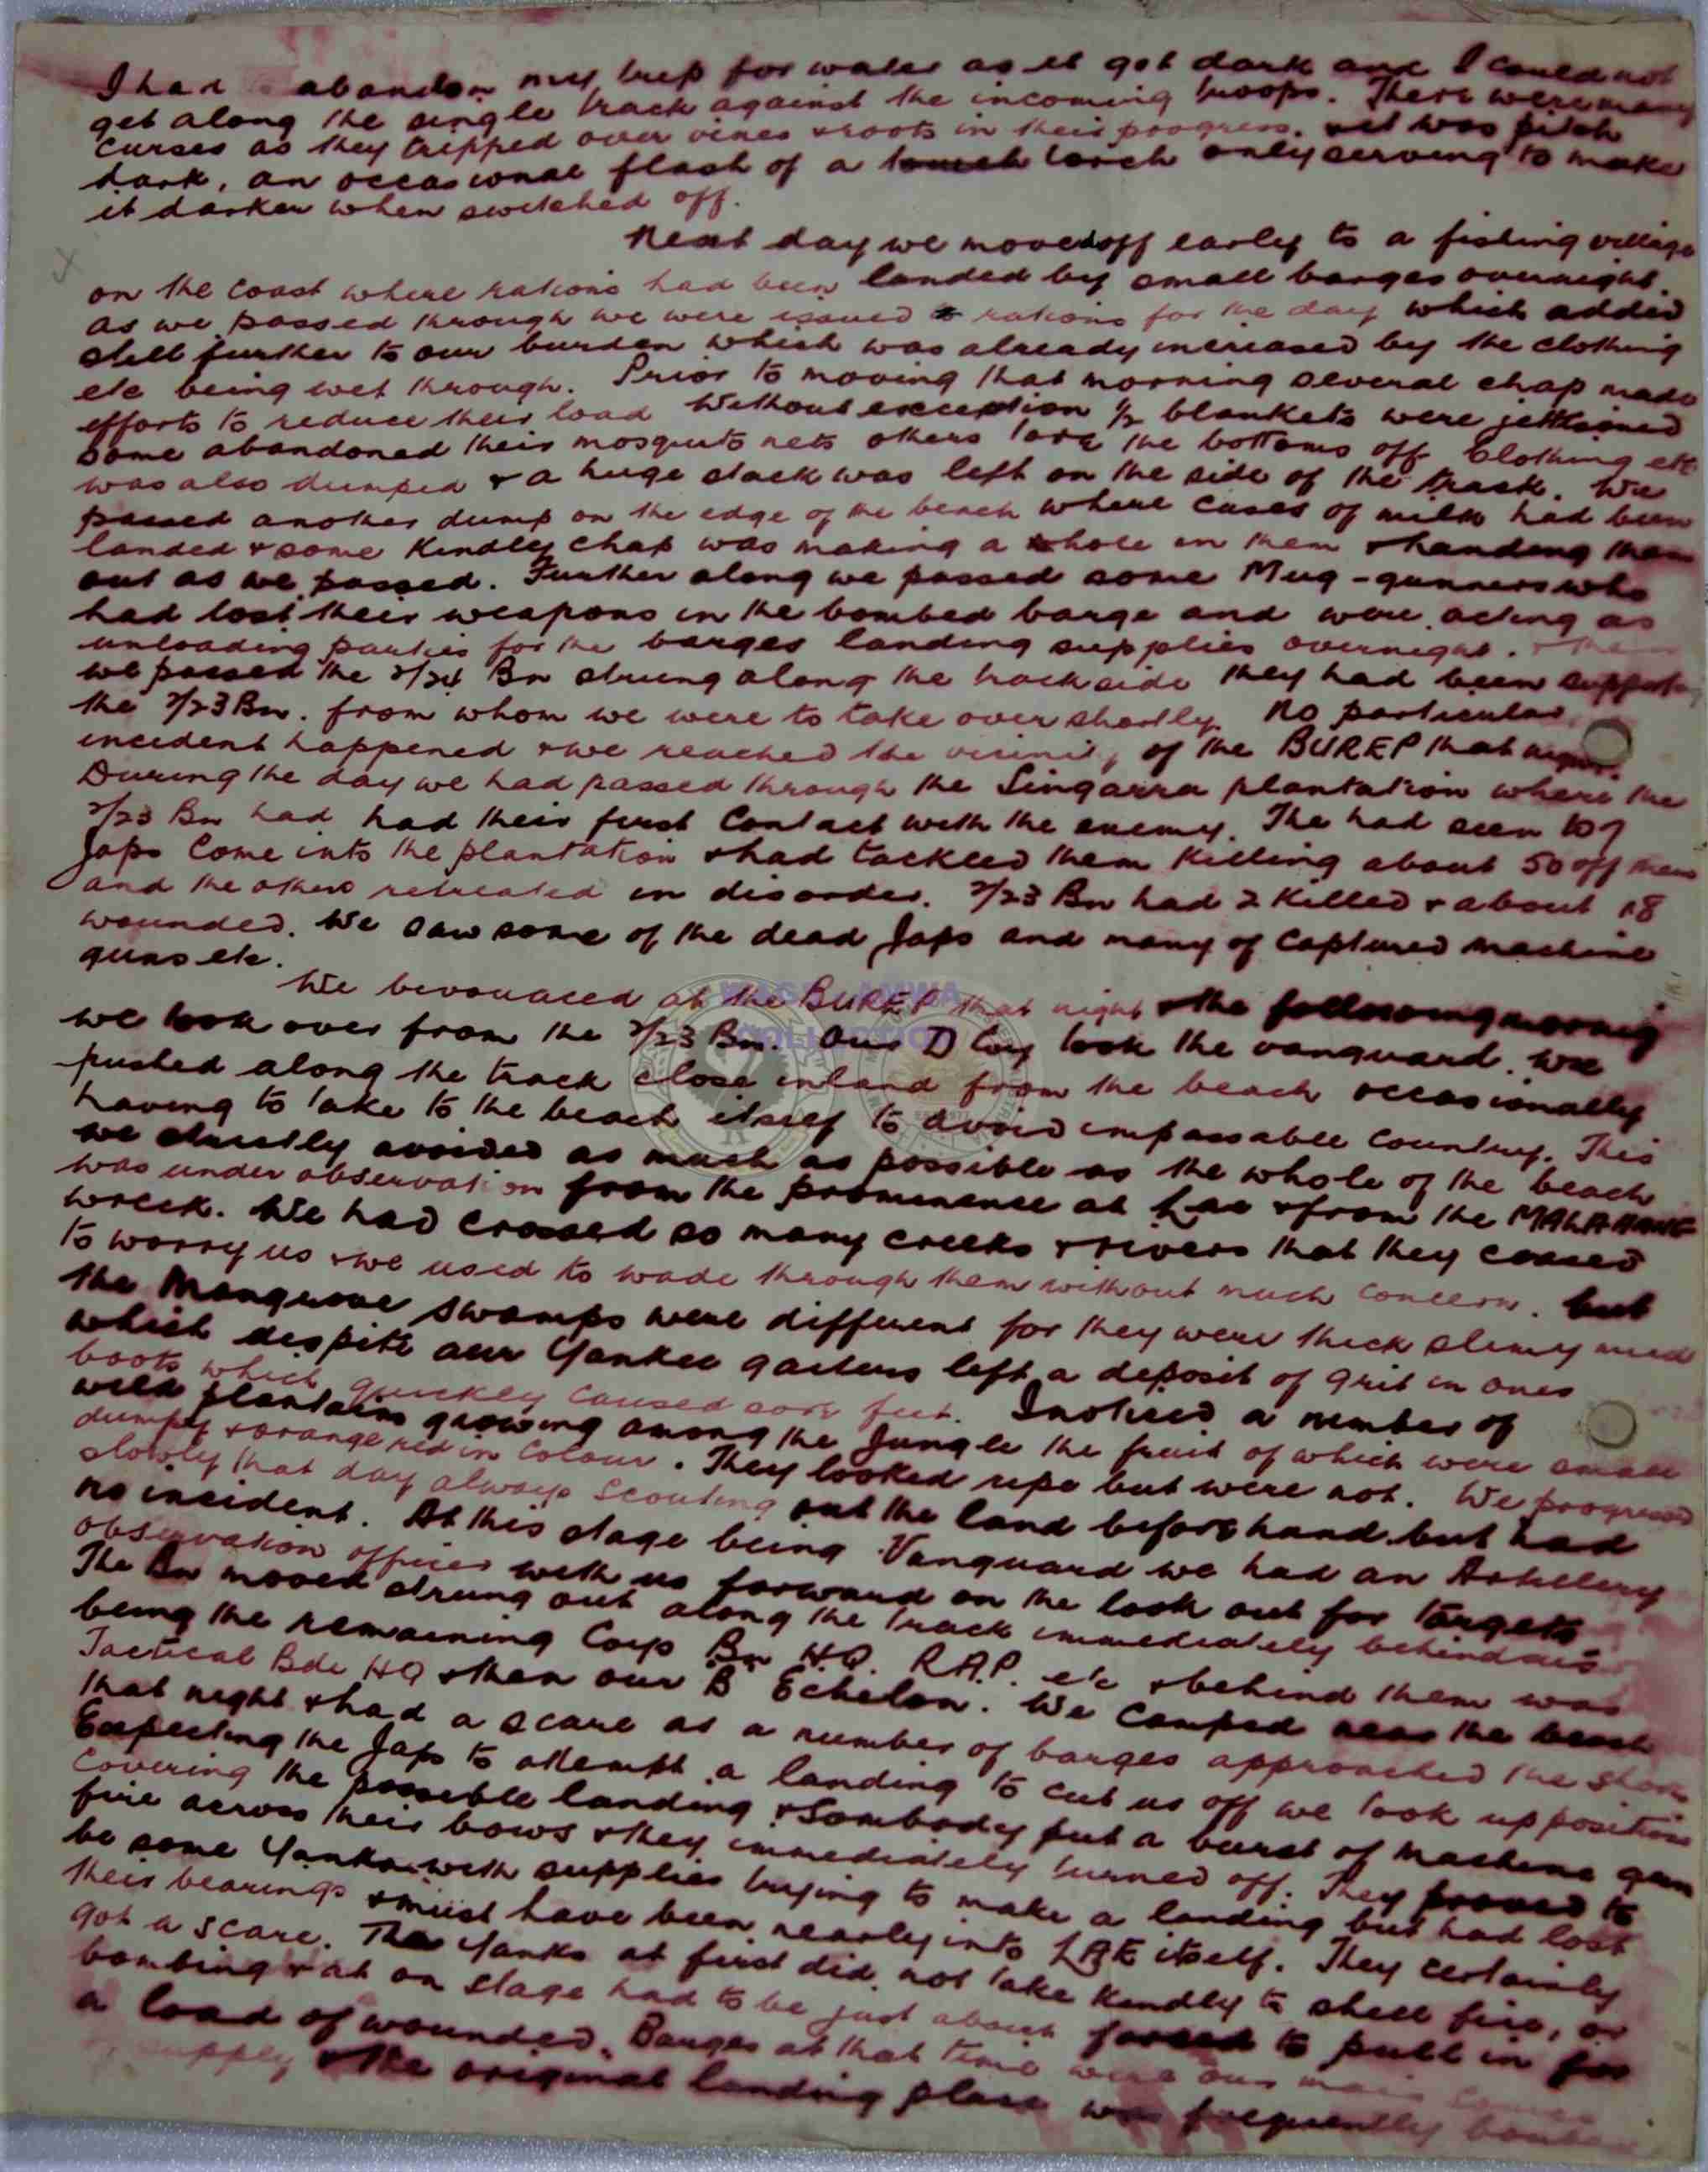 I had to abandon my trip for water as it got dark and I could not
get along the single track against the incoming troops. There were many
curses as they tripped over vines & roots in their progress. it was pitch
dark, an occasional flash of a torch only serving to make
it darker when switched off.
Next day we moved off early to a fishing village
on the coast where rations had been landed by small barges overnight.
As we passed through we were issued rations for the day which added
still further to our burden which was already increased by the clothing
etc being wet through. Prior to moving that morning several chap made
efforts to reduce their load Without exception ½ blankets were jettisoned
some abandoned their mosquito nets others tore the bottoms off Clothing etc
was also dumped & a huge stack was left on the side of the track. We
passed another dump on the edge of the beach where cases of milk had been
landed & some kindly chap was making a hole in them & handing them
out as we passed. Further along we passed some Mug-gunners who
had lost their weapons in the bombed barge and were acting as
unloading parties for the barges landing supplies overnight. & then
we passed the 2/24 Bn strung along the track side they had been
the 2/23 Bn. from whom we were to take over shortly. No particular
incident happened & we reached the vicinity of the BUREP that night.
During the day we had passed through the Singarra plantation where the
2/23 Bn had had their first contact with the enemy. The had seen
Japs come into the plantation & had tackled them killing about 50 off them
and the others retreated in disorder. 2/23 Bn had 2 killed & about 18
wounded. We saw some of the dead Japs and many of captured machine
guns etc.
We bivouaced at the BUREP that night & the following morning
we took over from the 2/23 Bn. Our D Coy took the vanguard. We
pushed along the track close inland from the beach occasionally
having to take to the beach itself to avoid impassable country. This
we strictly avoided as much as possible as the whole of the beach
was under observation from the prominence at Lae & from the MALAHANG
wreck. We had crossed so many creeks & rivers that they ceased
to worry us & we used to wade through them without much concern. but
the Mangrove swamps were different for they were thick slimy mud
which despite our Yankee gaiters left a deposit of grit in ones
boots which quickly caused sore feet. I noticed a number of
wild plantains growing among the Jungle the fruit of which were small
dumpy & orange red in colour. They looked ripe but were not. We progressed
slowly that day always scouting out the land before hand but had
no incident. At this stage being Vanguard we had an Artillery
observation officer with us forward on the look out for targets.
The Bn moved strung out along the track immediately behind us
being the remaining Coys Bn H.Q. R.A.P. etc & behind them was
Tactical Bde HQ & then our B Echelon. We camped near the beach
that night & had a scare as a number of barges approached the shore
Expecting the Japs to attempt a landing to cut us off we took up positions
covering the possible landing & Sombody put a burst of machine gun
fire across their bows & they immediately turned off. They proved to
be some Yanks with supplies trying to make a landing but had lost
their bearings & must have been nearly into LAE itself. They certainly
got a scare. The Yanks at first did not take kindly to shell fire, or
bombing & at on stage had to be just about forced to pull in for
a load of wounded. Barges at that time were our main
supply & the original landing place was frequently
WAGS LAMWA
COLLECTION